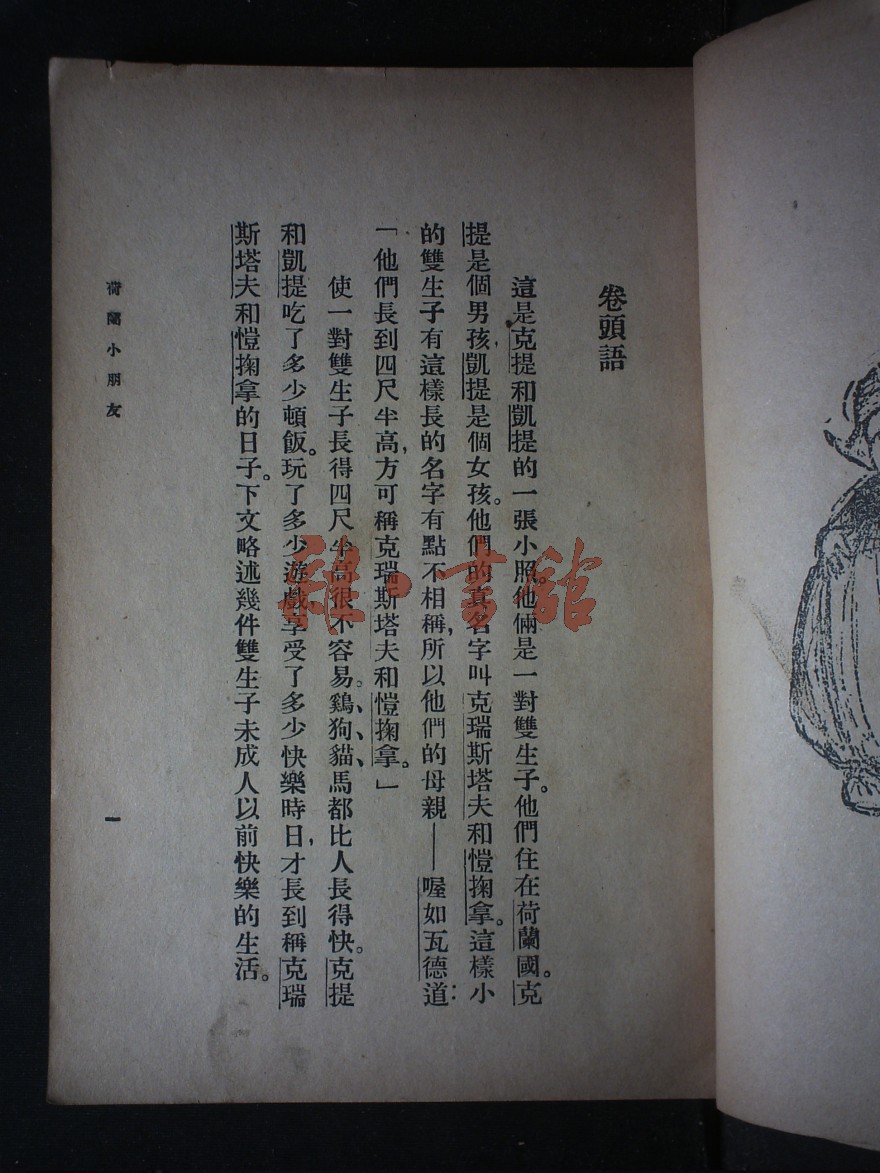 卷頭語
這是克提和凱提的一張小照。他倆是一對雙生子。他們住在荷蘭國。克
提是個男孩，凱提是個女孩。他們的真名字叫克瑞斯塔夫和愷掬拿。這樣小
的雙生子有這樣長的名字有點不相稱，所以他們的母親——喔如瓦德道：
「他們長到四尺半高，方可稱克瑞斯塔夫和愷掬拿。」
使一對雙生子長得四尺半高很不容易。鷄、狗、貓、馬都比人長得快。克提
和凱提吃了多少頓飯。玩了多少遊戲享受了多少快樂時日，才長到稱克瑞
斯塔夫和愷掬拿的日子。下文略述幾件雙生子未成人以前快樂的生活。
荷蘭小朋友
一
雜·書館